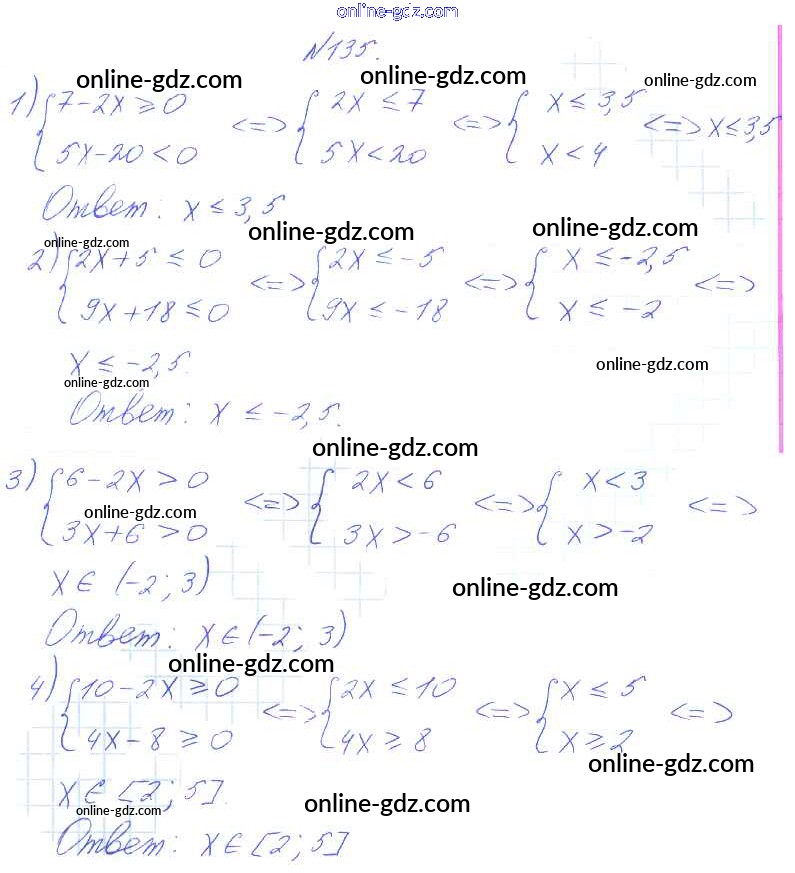 online-gdz.com
N135.
online-gdz.com online-gdz.com online-gdz.com
1) { 7-2x ≥ 0 <=> { 2x ≤ 7 <=> { x ≤ 3,5 <=> x ≤ 3,5
5x-20 < 0 5x < 20 x < 4
Ответ: x ≤ 3,5
online-gdz.com online-gdz.com online-gdz.com
2) { 2x+5 ≤ 0 <=> { 2x ≤ -5 <=> { x ≤ -2,5 <=>
9x+18 ≤ 0 9x ≤ -18 x ≤ -2
x ≤ -2,5.
online-gdz.com online-gdz.com
Ответ: x ≤ -2,5.
online-gdz.com
3) { 6-2x > 0 <=> { 2x < 6 <=> { x < 3 <=>
online-gdz.com
3x+6 > 0 3x > -6 x > -2
x ∈ (-2; 3)
online-gdz.com
Ответ: x ∈ (-2; 3)
online-gdz.com
4) { 10-2x ≥ 0 <=> { 2x ≤ 10 <=> { x ≤ 5 <=>
online-gdz.com
4x-8 ≥ 0 4x ≥ 8 x ≥ 2
online-gdz.com
x ∈ [2; 5].
online-gdz.com online-gdz.com
Ответ: x ∈ [2; 5]